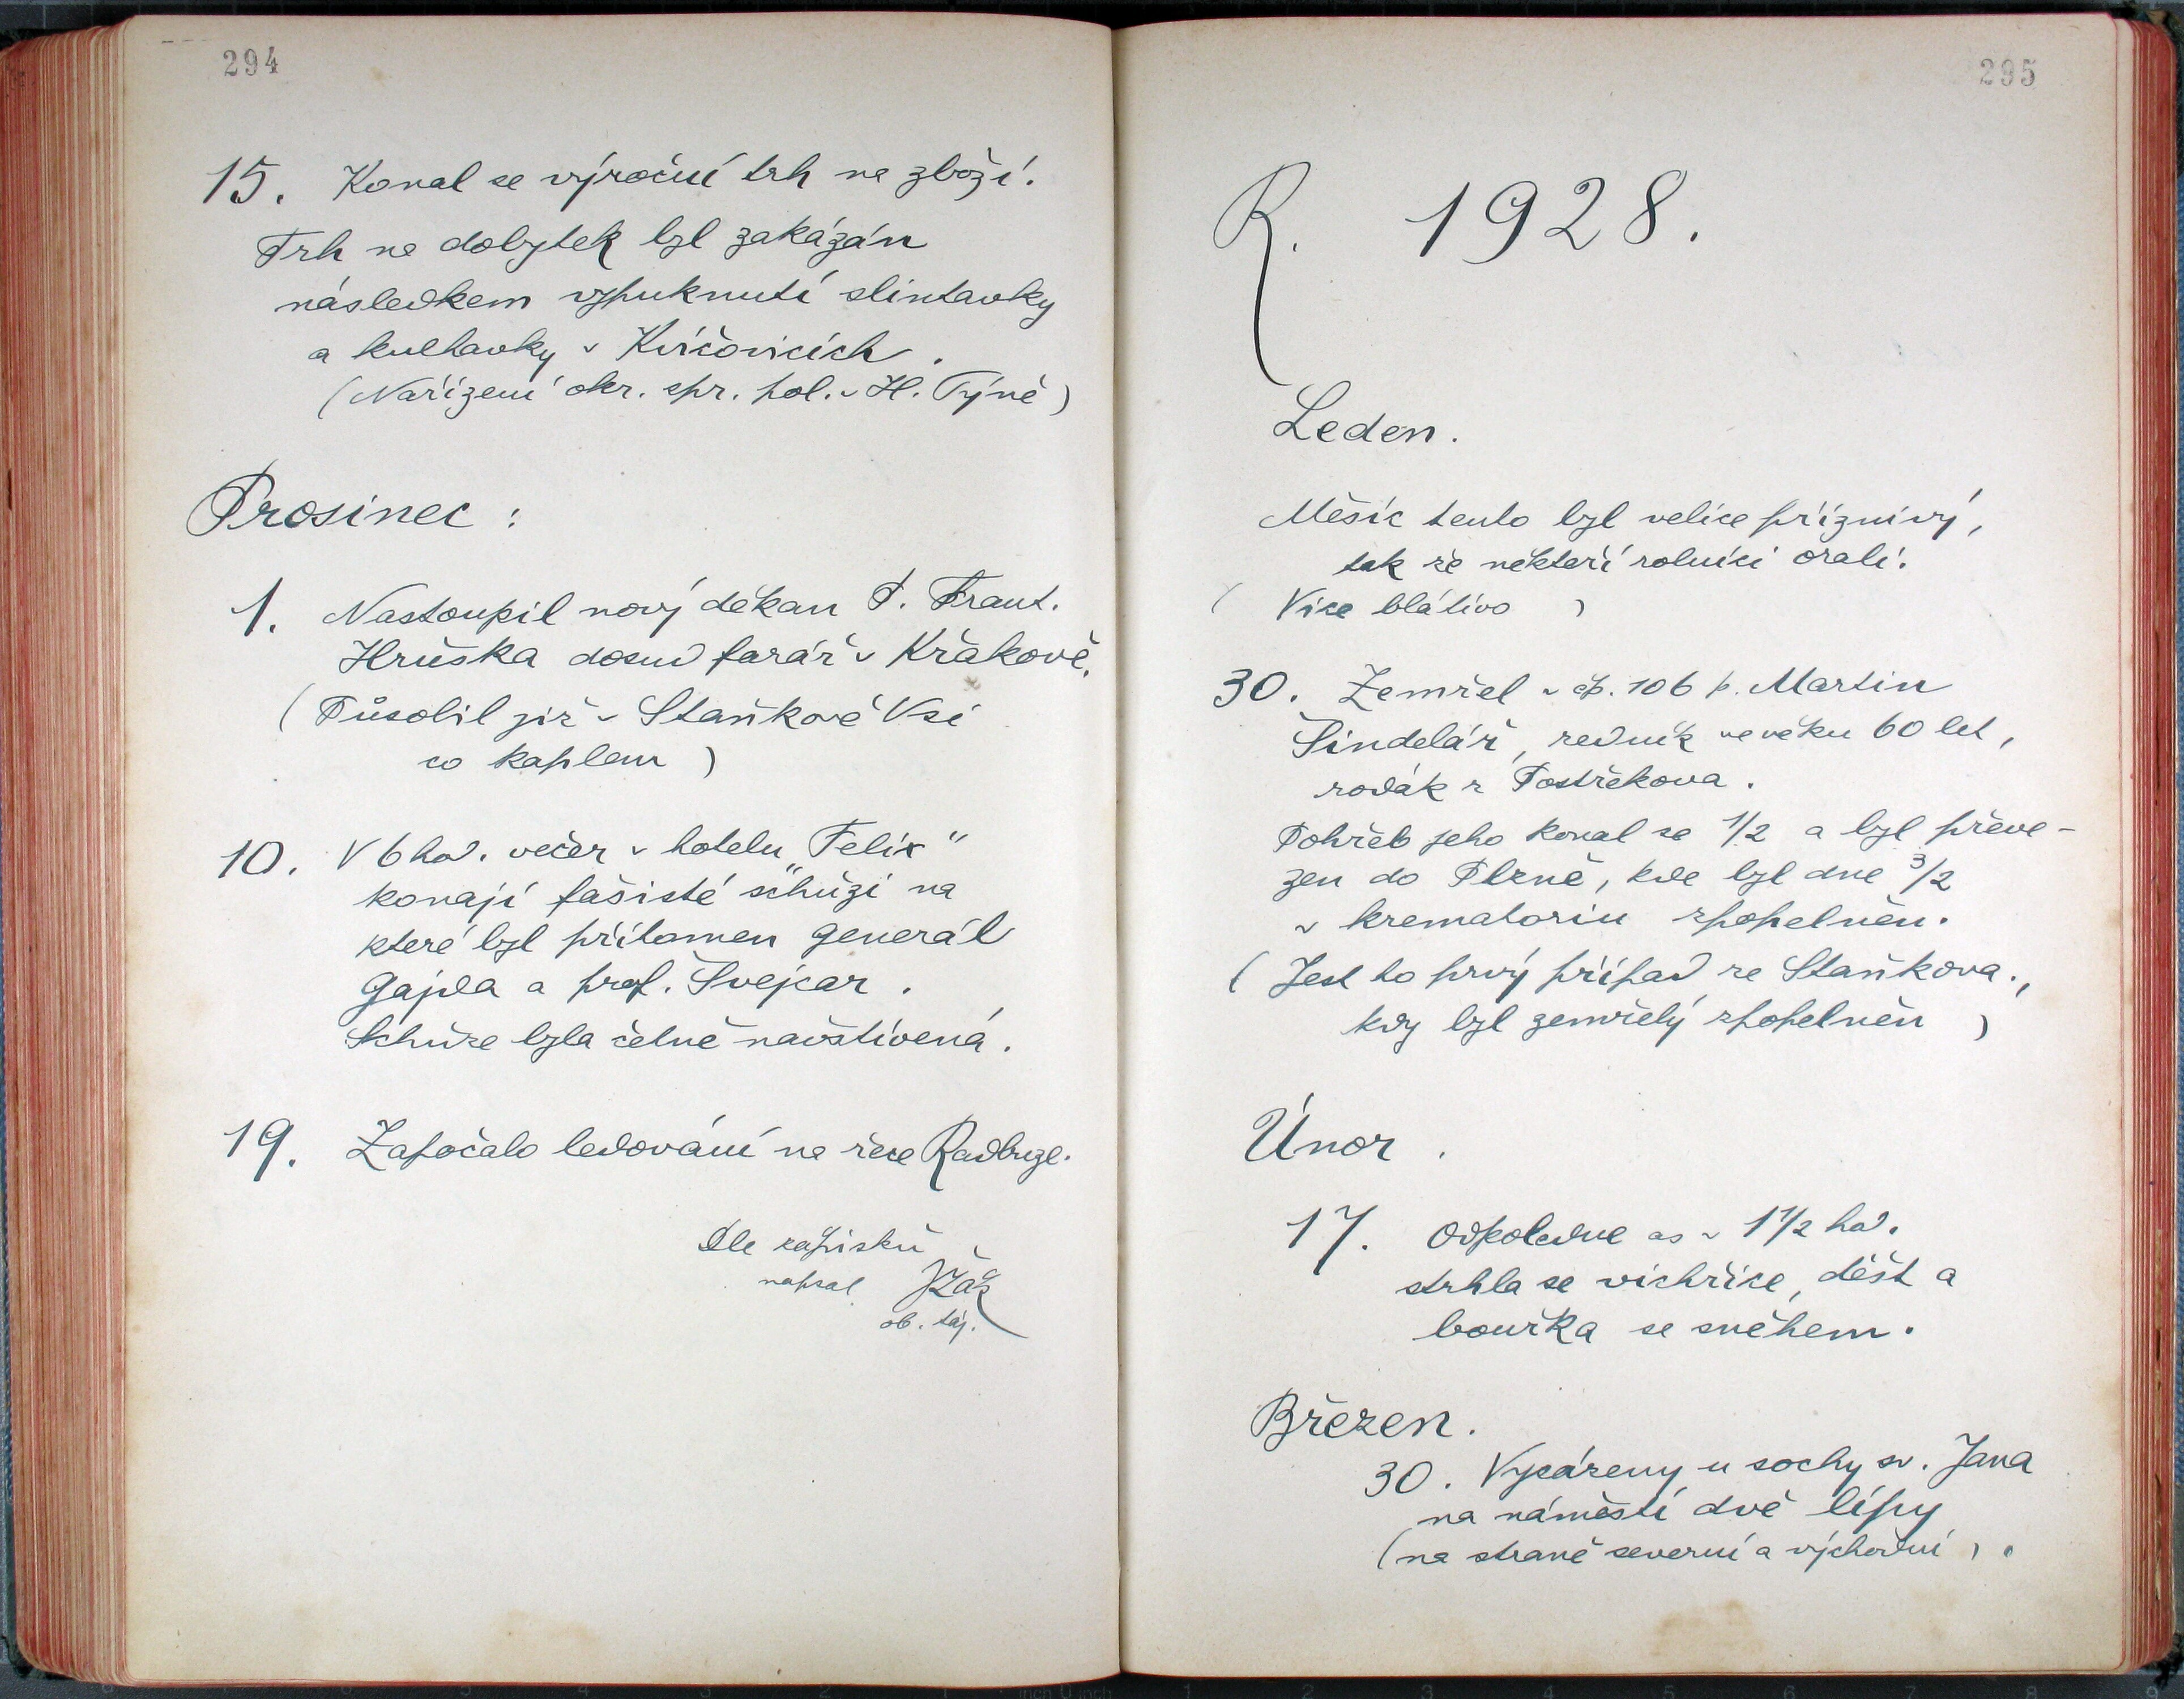 294
15. Konal se výroční trh na zboží.
Trh na dobytek byl zakázán
následkem vypuknutí slintavky
a kulhavky v Kvíčovicích.
(Nařízení okr. spr. pol. v H. Týně)
Prosinec:
1. Nastoupil nový děkan P. Frant.
Hruška dosud farář v Křakově.
(Působil již v Staňkově Vsi
co kaplan)
10. V 6 hod. večer v hotelu „Felix"
konají fašisté schůzi na
které byl přítomen generál
Gajda a prof. Švejcar.
Schůze byla četně navštívená.
19. Započalo ledování na řece Radbuze.
Dle zápisků
napsal
ob. táj.
295
R. 1928.
Leden.
Měsíc tento byl velice příznivý,
tak že někteří rolníci orali.
(Více blátivo)
30. Zemřel v čp. 106 p. Martin
Šindelář, řezník ve věku 60 let,
rodák z Postřekova.
Pohřeb jeho konal se 1/2 a byl převe-
zen do Plzně, kde byl dne 3/2
v krematoriu zpopelněn.
(Jest to prvý případ ze Staňkova.,
kdy byl zemřelý zpopelněn)
Únor.
17. Odpoledne as v 1 1/2 hod.
strhla se vichřice, déšt a
bouřka se sněhem.
Březen.
30. Vykáceny u sochy sv. Jana
na náměstí dvě lípy
(na straně severní a východní).